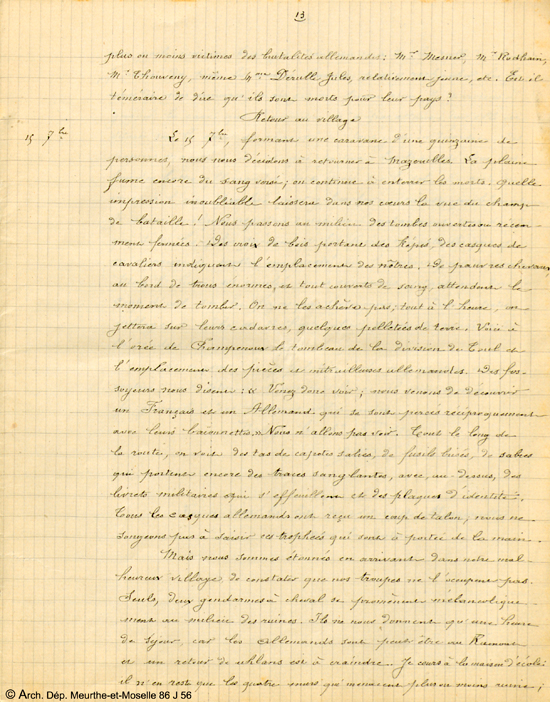 13
plus ou moins victimes des brutalités allemandes : Mr Mesnier, Mr
Mr Thouveny, même Jules, relativement jeune, etc. Est-il
téméraire de dire qu'ils sont morts pour leur pays ?
Retour au village
15 7bre
Le 15 7bre, formant une caravane d'une quinzaine de
personnes, nous nous décidons à retourner à Mazerulles. La plaine
fume encore du sang versé ; on continue à enterrer les morts. Quelle
impression inoubliable laissera dans nos cœurs la vue du champ
de bataille ! Nous passons au milieu des tombes ouvertes ou récem-
ment fermées. Des croix de bois portant des képis, des casques de
cavaliers indiquent l'emplacement des nôtres. De pauvres chevaux
au bord de trous énormes, et tout couverts de sang, attendent le
moment de tomber. On ne les achève pas ; tout à l'heure, on
jettera sur leurs cadavres, quelques pelletées de terre. Voici à
l'orée de Champenoux le tombeau de la division de Toul et
l'emplacement des pièces et mitrailleuses allemandes. Des fos-
soyeurs nous disent : « Venez donc voir ; nous venons de découvrir
un Français et un Allemand qui se sont percés réciproquement
avec leurs baïonnettes. » Nous n'allons pas voir. Tout le long de
la route, on voit des tas de capotes salies, de fusils brisés, de sabres
qui portent encore des traces sanglantes, avec, au dessus, des
livrets militaires qui s'effeuillent et des plaques d'identité.
Tous les casques allemands ont reçu un coup de talon ; nous ne
songeons pas à saisir ces trophées qui sont à portée de la main.
Mais nous sommes étonnés en arrivant dans notre mal-
heureux village de constater que nos troupes ne l'occupent pas.
Seuls, deux gendarmes à cheval se promènent mélancolique-
ment au milieu des ruines. Ils ne nous donnent qu'une heure
de séjour, car les Allemands sont peut être au Rumont
et un retour de uhlans est à craindre. Je cours à la maison d'école ;
il n'en reste que les quatre murs qui menacent plus ou moins ruine ;
© Arch. Dép. Meurthe-et-Moselle 86 J 56